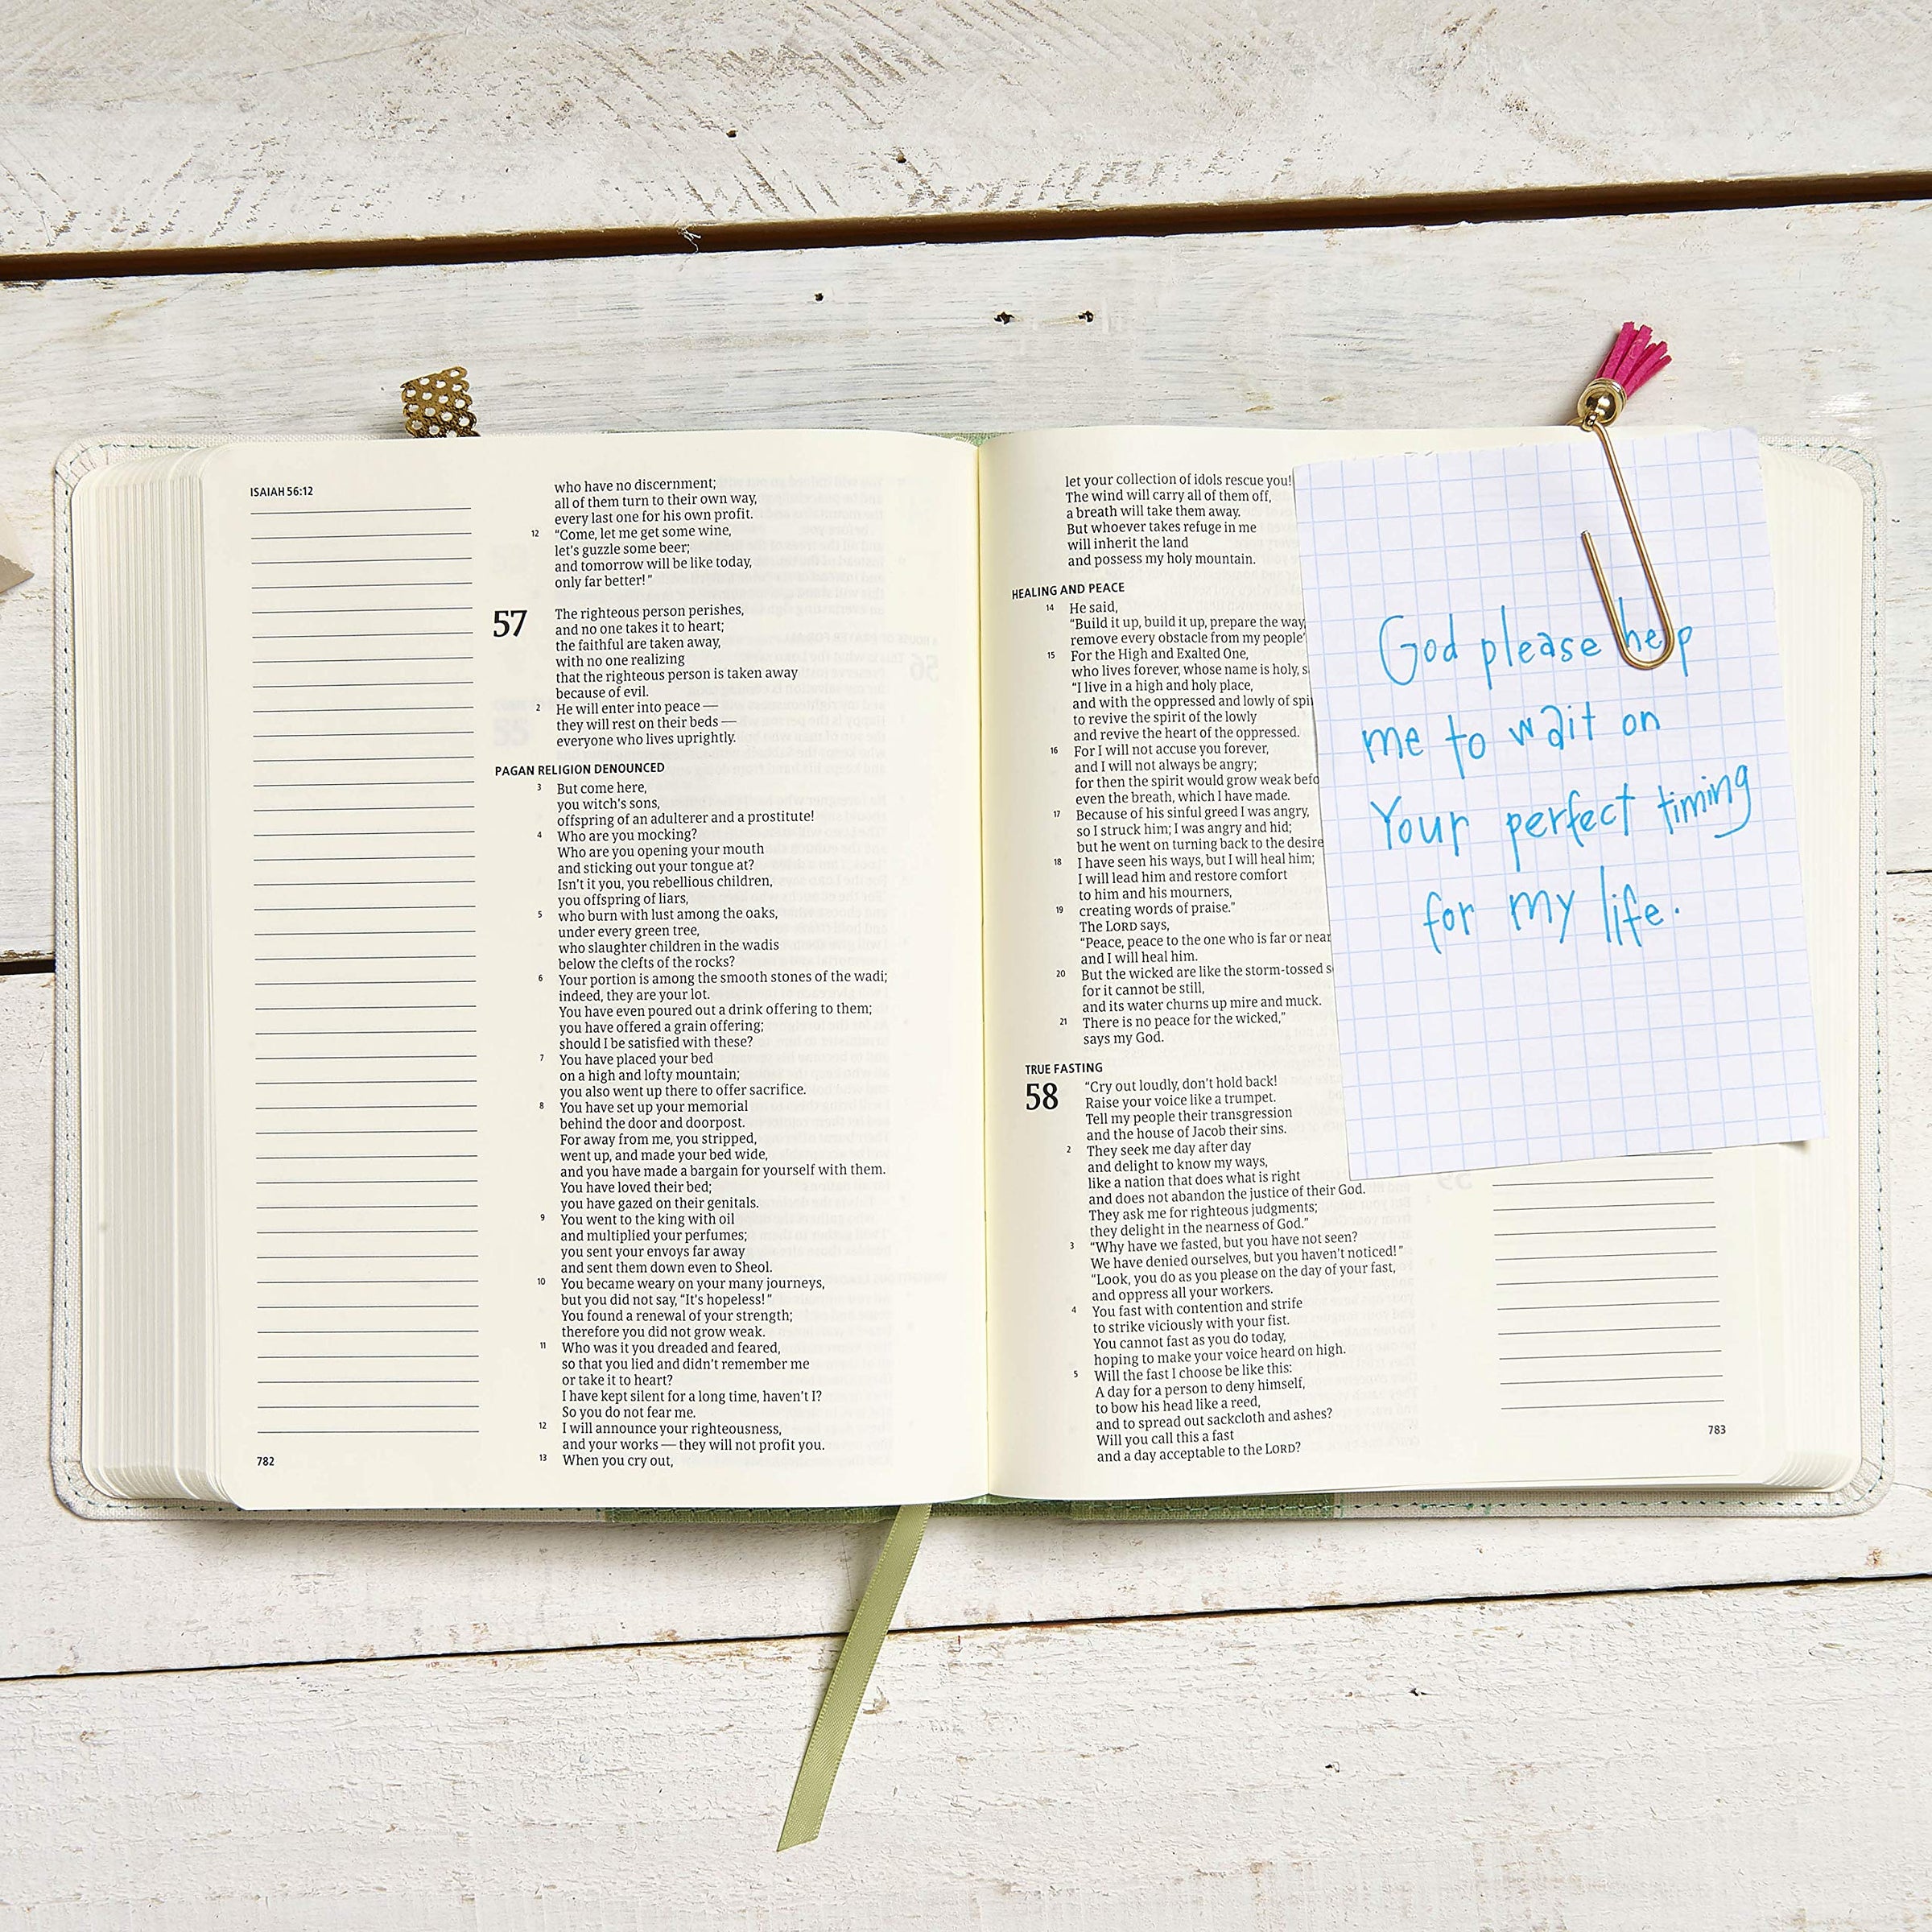 ISAIAH 56:12
who have no discernment;
all of them turn to their own way,
every last one for his own profit.
12 “Come, let me get some wine,
let's guzzle some beer;
and tomorrow will be like today,
only far better!”
57 The righteous person perishes,
and no one takes it to heart;
the faithful are taken away,
with no one realizing
that the righteous person is taken away
because of evil.
2 He will enter into peace —
they will rest on their beds —
everyone who lives uprightly.
PAGAN RELIGION DENOUNCED
3 But come here,
you witch's sons,
offspring of an adulterer and a prostitute!
4 Who are you mocking?
Who are you opening your mouth
and sticking out your tongue at?
Isn't it you, you rebellious children,
you offspring of liars,
5 who burn with lust among the oaks,
under every green tree,
who slaughter children in the wadis
below the clefts of the rocks?
6 Your portion is among the smooth stones of the wadi;
indeed, they are your lot.
You have even poured out a drink offering to them;
you have offered a grain offering;
should I be satisfied with these?
7 You have placed your bed
on a high and lofty mountain;
you also went up there to offer sacrifice.
8 You have set up your memorial
behind the door and doorpost.
For away from me, you stripped,
went up, and made your bed wide,
and you have made a bargain for yourself with them.
You have loved their bed;
you have gazed on their genitals.
9 You went to the king with oil
and multiplied your perfumes;
you sent your envoys far away
and sent them down even to Sheol.
10 You became weary on your many journeys,
but you did not say, “It's hopeless!”
You found a renewal of your strength;
therefore you did not grow weak.
11 Who was it you dreaded and feared,
so that you lied and didn't remember me
or take it to heart?
I have kept silent for a long time, haven't I?
So you do not fear me.
12 I will announce your righteousness,
and your works — they will not profit you.
13 When you cry out,
782
let your collection of idols rescue you!
The wind will carry all of them off,
a breath will take them away.
But whoever takes refuge in me
will inherit the land
and possess my holy mountain.
HEALING AND PEACE
14 He said,
“Build it up, build it up, prepare the way,
remove every obstacle from my people'
15 For the High and Exalted One,
who lives forever, whose name is holy,
“I live in a high and holy place,
and with the oppressed and lowly of
to revive the spirit of the lowly
and revive the heart of the oppressed.
16 For I will not accuse you forever,
and I will not always be angry;
for then the spirit would grow weak
even the breath, which I have made.
17 Because of his sinful greed I was angry,
so I struck him; I was angry and hid;
but he went on turning back to the desire
18 I have seen his ways, but I will heal him;
I will lead him and restore comfort
to him and his mourners,
19 creating words of praise.”
The LORD says,
“Peace, peace to the one who is far or near
and I will heal him.
20 But the wicked are like the storm-tossed
for it cannot be still,
and its water churns up mire and muck.
21 There is no peace for the wicked,”
says my God.
TRUE FASTING
58 “Cry out loudly, don't hold back!
Raise your voice like a trumpet.
Tell my people their transgression
and the house of Jacob their sins.
2 They seek me day after day
and delight to know my ways,
like a nation that does what is right
and does not abandon the justice of their God.
They ask me for righteous judgments;
they delight in the nearness of God.”
3 “Why have we fasted, but you have not seen?
We have denied ourselves, but you haven't noticed!”
“Look, you do as you please on the day of your fast,
and oppress all your workers.
4 You fast with contention and strife
to strike viciously with your fist.
You cannot fast as you do today,
hoping to make your voice heard on high.
5 Will the fast I choose be like this:
A day for a person to deny himself,
to bow his head like a reed,
and to spread out sackcloth and ashes?
Will you call this a fast
and a day acceptable to the LORD?
783
God please help
me to wait on
Your perfect timing
for my life.